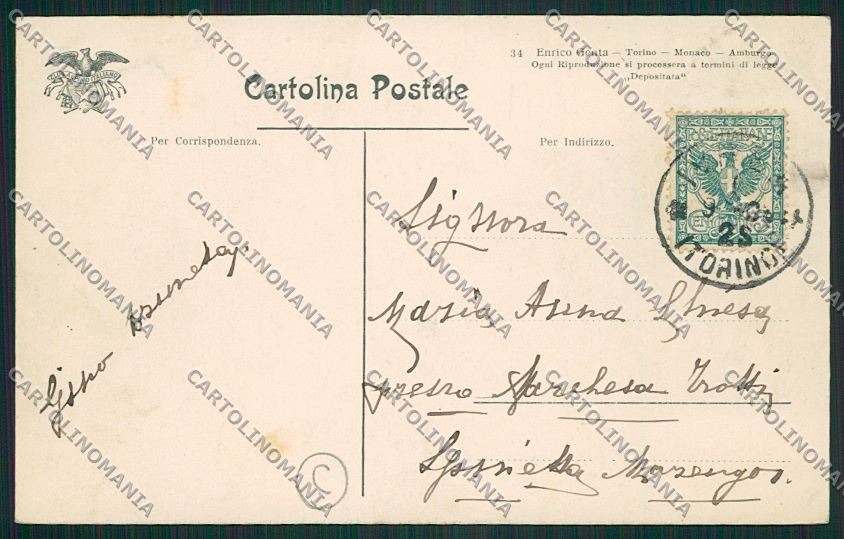 34 Enrico Genta — Torino — Monaco — Amburgo
Ogni Riproduzione si processera a termini di legge
„Depositata“
Cartolina Postale
Per Corrispondenza.
Per Indirizzo.
POSTE ITALIANE
TORINO
25
Signora
Maria Anna
presso Marchesa Trotti
Marengo.
C
CARTOLINOMANIA